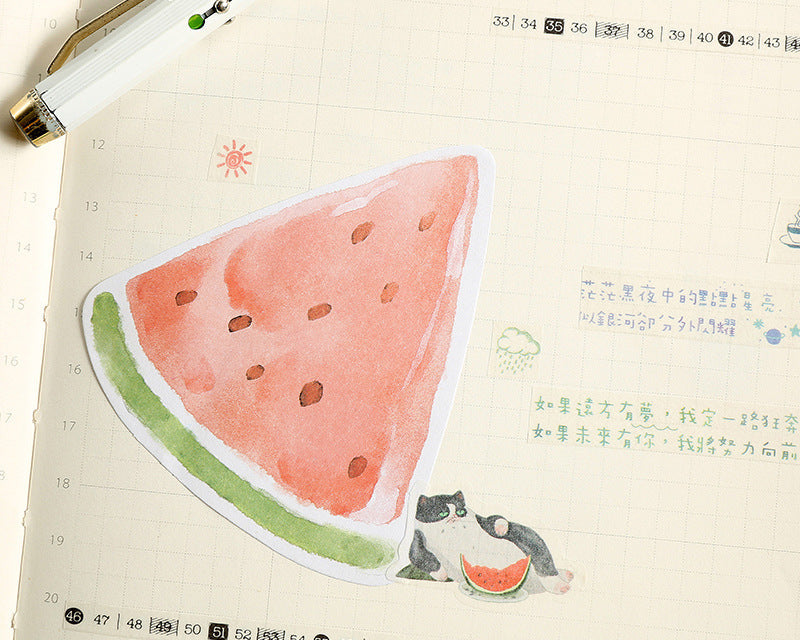 33 34 35 36 37 38 39 40 41 42 43
10
12
13
14
15
16
17
18
19
20
13
14
15
16
17
18
茫茫黑夜中的點點星亮
似銀河卻分外閃耀
如果遠方有夢，我定一路狂奔
如果未來有你，我將努力向前
46 47 48 49 50 51 52 53 54